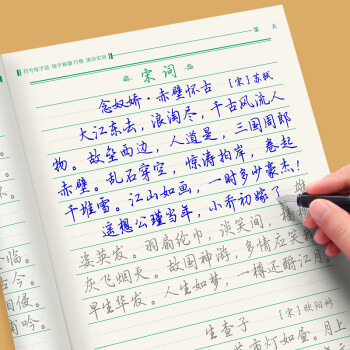 宋词
念奴娇·赤壁怀古 [宋]苏轼
大江东去，浪淘尽，千古风流人
物。故垒西边，人道是，三国周郎
赤壁。乱石穿空，惊涛拍岸，卷起
千堆雪。江山如画，一时多少豪杰！
遥想公瑾当年，小乔初嫁了，雄
姿英发。羽扇纶巾，谈笑间，樯
灰飞烟灭。故国神游，多情应笑
早生华发。人生如梦，一樽还酹江月
生查子 [宋]欧阳修
市灯如昼。月上